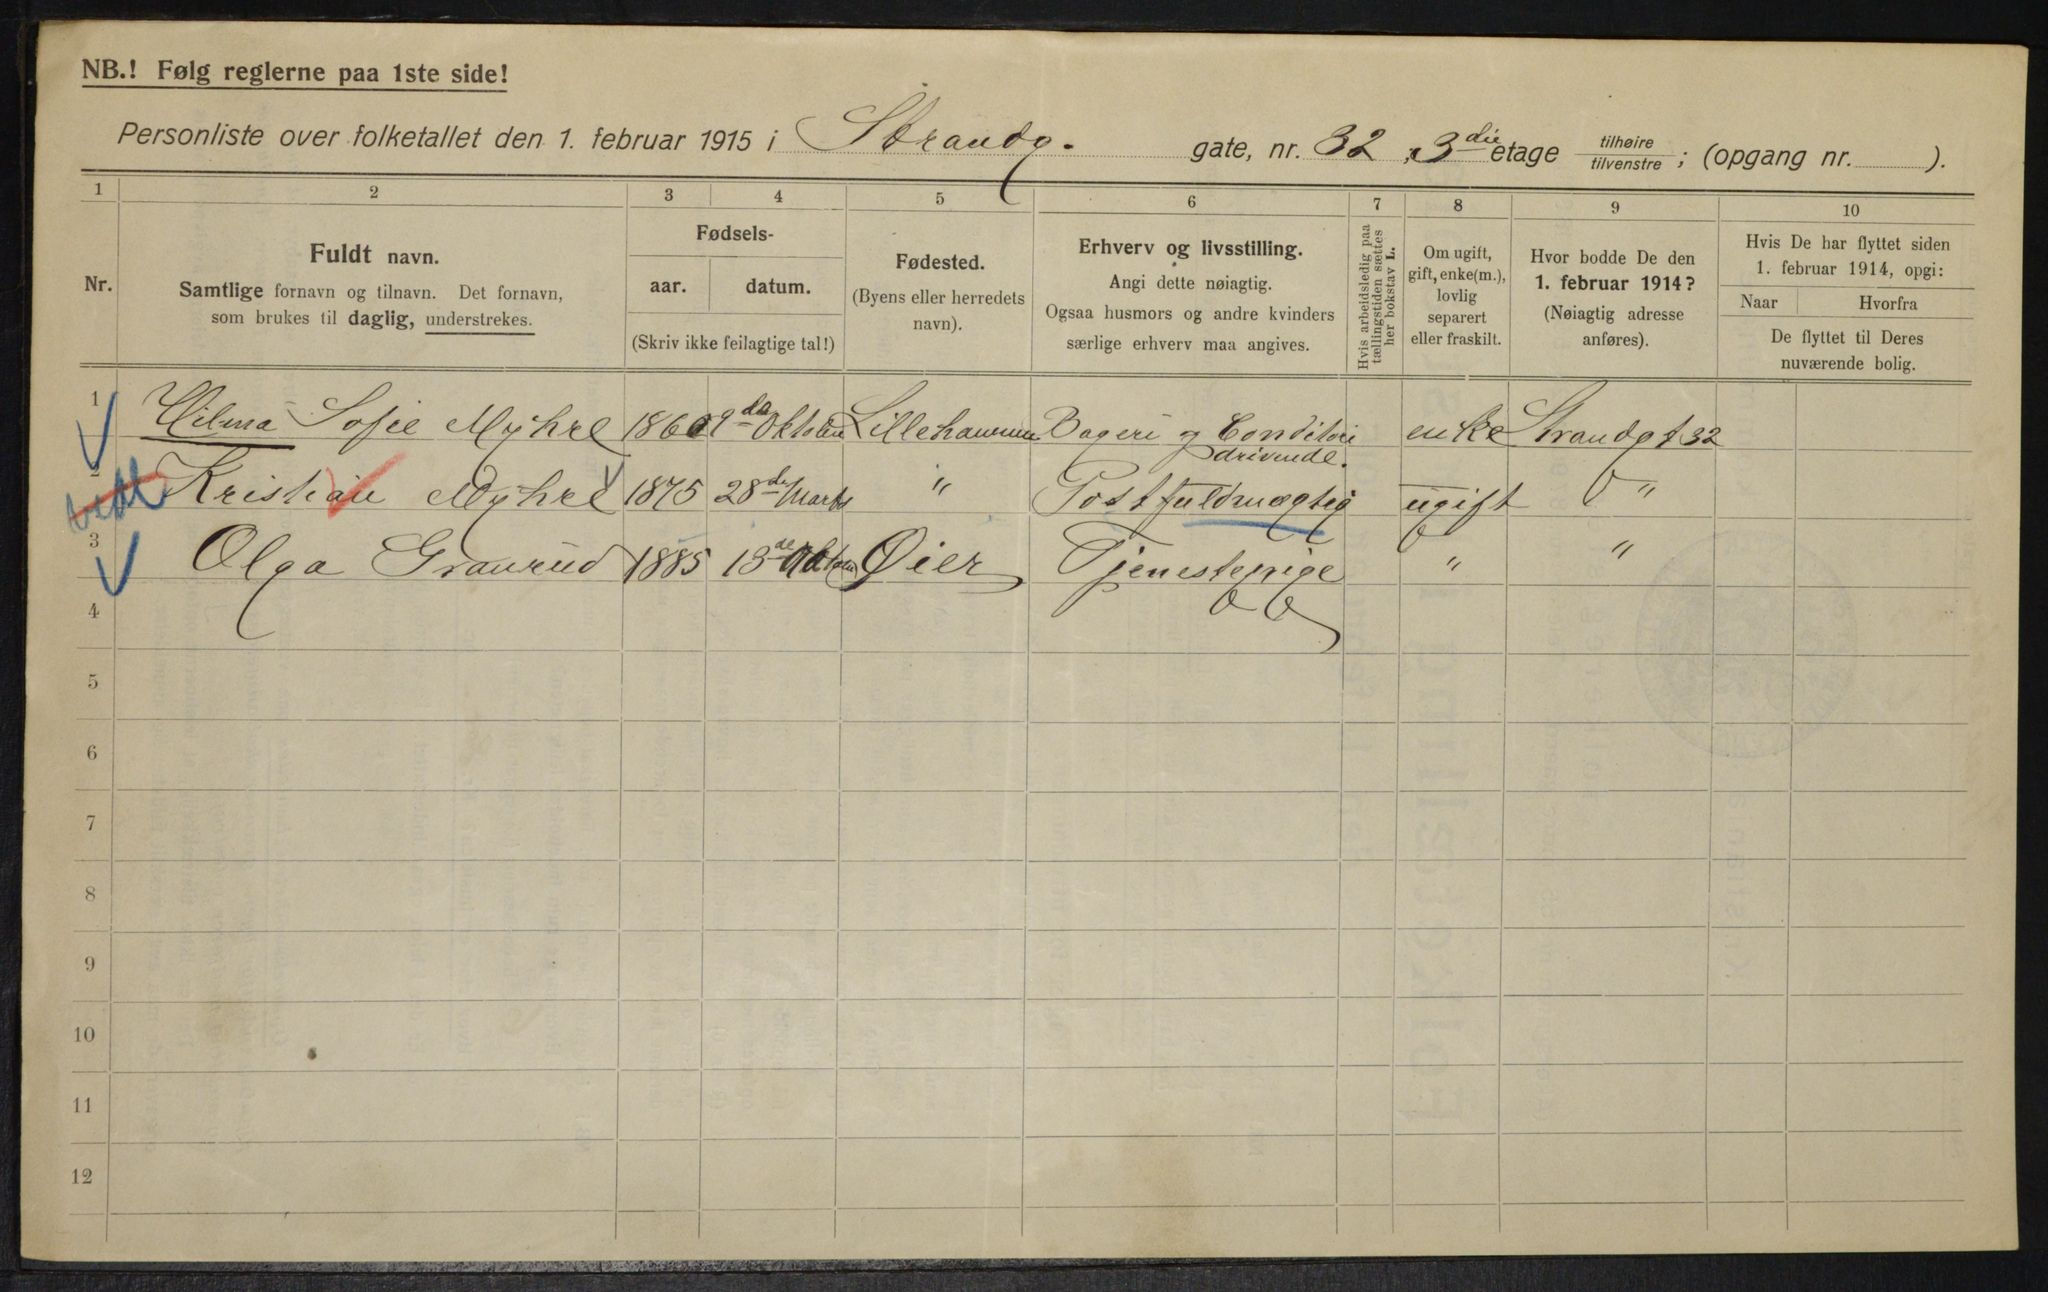 NB.! Følg reglerne paa 1ste side!
Personliste over folketallet den 1. februar 1915 i Strandg. gate, nr. 32, 3die etage tilhøire tilvenstre ; (opgang nr. ).
1 2 3 4 5 6 7 8 9 10
Nr.
Fuldt navn.
Samtlige fornavn og tilnavn. Det fornavn,
som brukes til daglig, understrekes.
Fødsels-
aar. datum.
(Skriv ikke feilagtige tal!)
Fødested.
(Byens eller herredets
navn).
Erhverv og livsstilling.
Angi dette nøiagtig.
Ogsaa husmors og andre kvinders
særlige erhverv maa angives.
Hvis arbeidsledig paa
tællingstiden sættes
her bokstav L.
Om ugift,
gift, enke(m.),
lovlig
separert
eller fraskilt.
Hvor bodde De den
1. februar 1914?
(Nøiagtig adresse
anføres).
Hvis De har flyttet siden
1. februar 1914, opgi:
Naar Hvorfra
De flyttet til Deres
nuværende bolig.
1 Hilma Sofie Myhre 1860 9da Lillehammer Bageri og Conditori enke Strandgt 32
drivende.
2 Kristian Myhre 1875 28de Marts " Postfuldmægtig ugift "
3 Olga Granrud 1885 13de Øier Tjenestepige " "
4
5
6
7
8
9
10
11
12